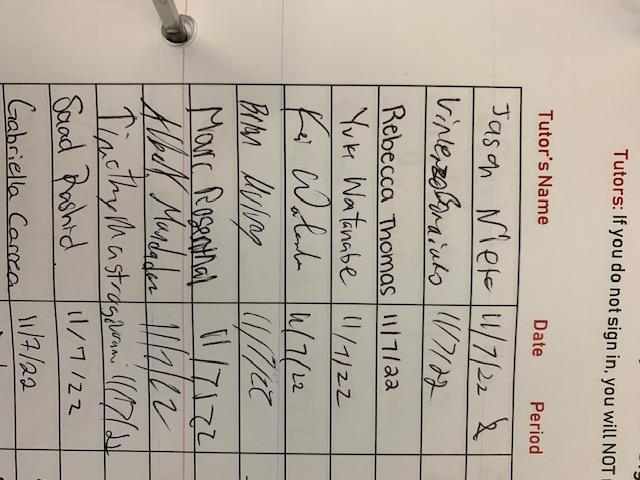 Tutors: If you do not sign in, you will NOT
Tutor's Name Date Period
Jason Nieto 11/7/22 &
Vincenzo 11/7/22
Rebecca Thomas 11/7/22
Yuki Watanabe 11/7/22
Kei 11/7/22
Brian 11/7/22
Marc Rosenthal 11/7/22
Albert 11/7/22
Timothy Mastrogiovanni 11/7/22
Saad Rashid 11/7/22
Gabriella Correa 11/7/22